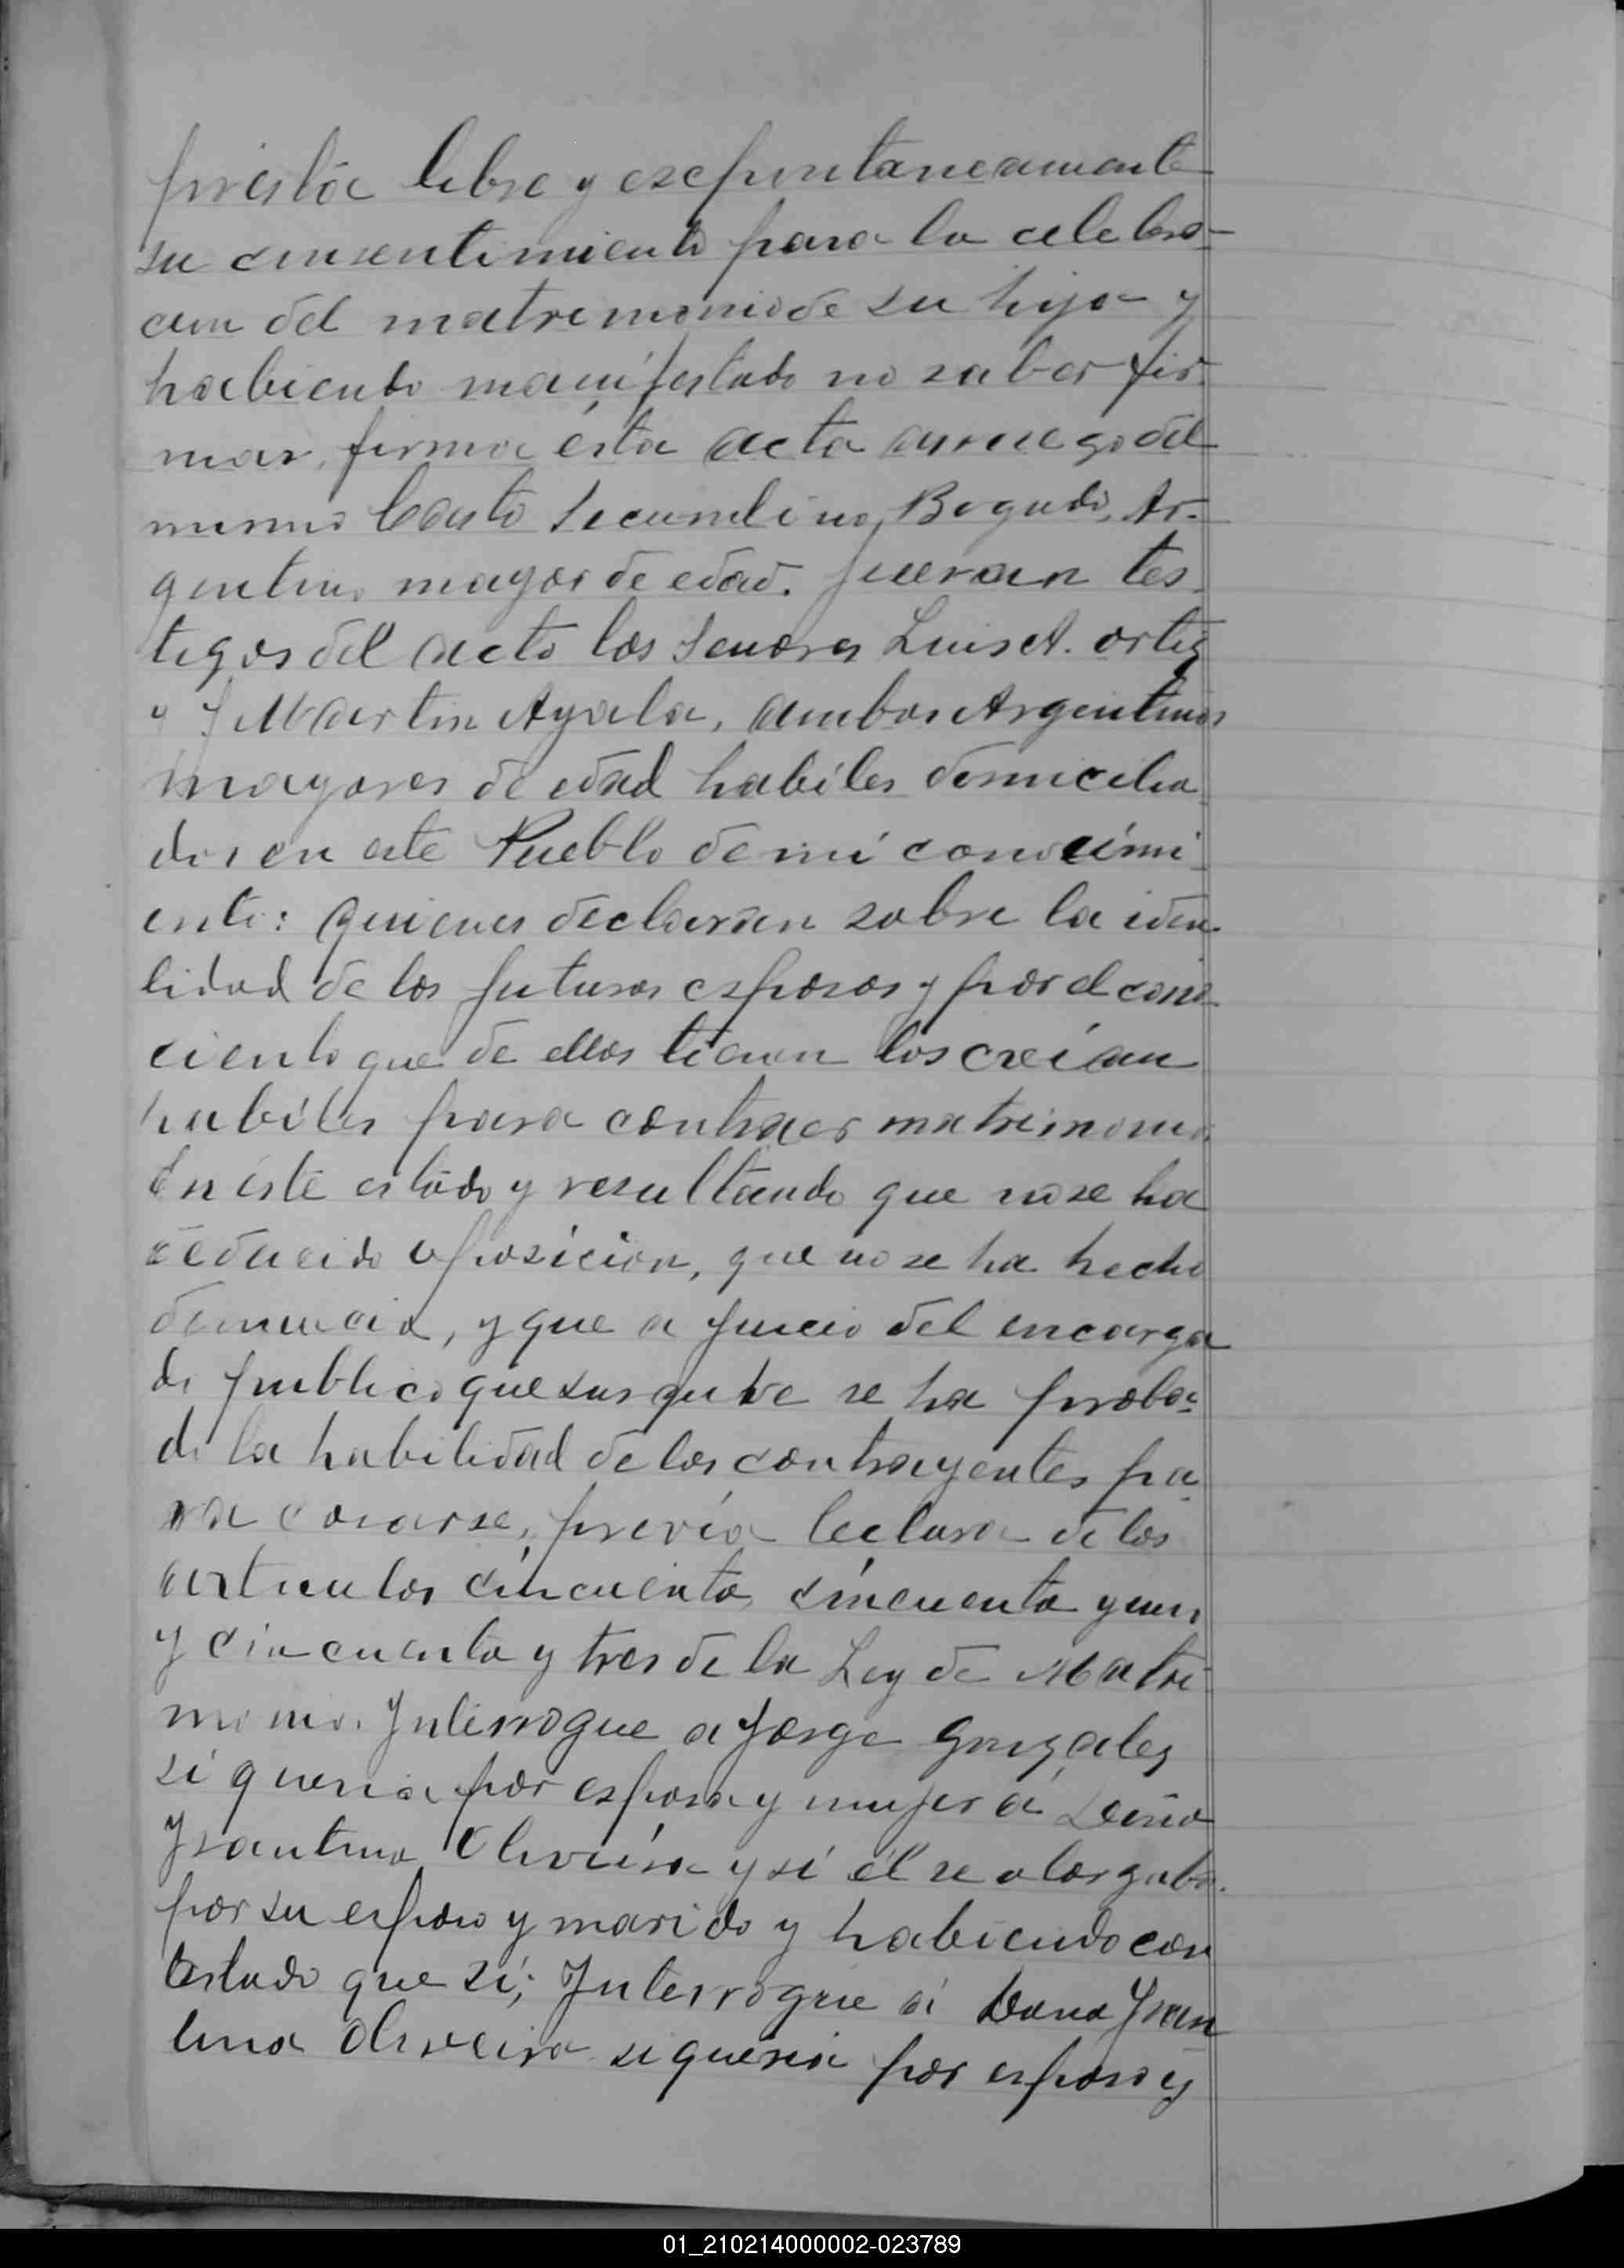 prestóa libre y esepontaneamente
su consentimiento para la celebra-
cion del matrimonio de su hija y
habiendo manifestado no saber fir-
mar, firma ésta acta a ruego del
mismo Casto Secundino, Bogado, Ar-
gentino mayor de edad. fueron tes-
tigos del acto los Senores Luis A. ortiz
y J Martin Ayala, ambos Argentinos
mayores de edad habiles domicilia-
dos en este Pueblo de mi conocimi-
ento: quienes declaran sobre la iden-
tidad de los futuros esposos y por el cono-
ciento que de ellos tienen los creían
habiles para contraer matrimonio
En éste estado y resultando que no se ha
deducido oposicion, que no se ha hecho
denuncia, y que a juicio del encarga
do publico que suscribe se ha proba-
do la habilidad de los contrayentes pa-
ra casarse, previa lectura de los
articulos cincuenta, cincuenta y uno
y cincuenta y tres de la Ley de Matri-
monio. Interrogue a Jorge Gonzalez
si queria por esposa y mujer á Doña
Juantina Oliveira y si él se otorgaba
por su esposo y marido y habiendo con
testado que sí; Interrogue á Dona Juan
tina Oliveira si queria por esposo y